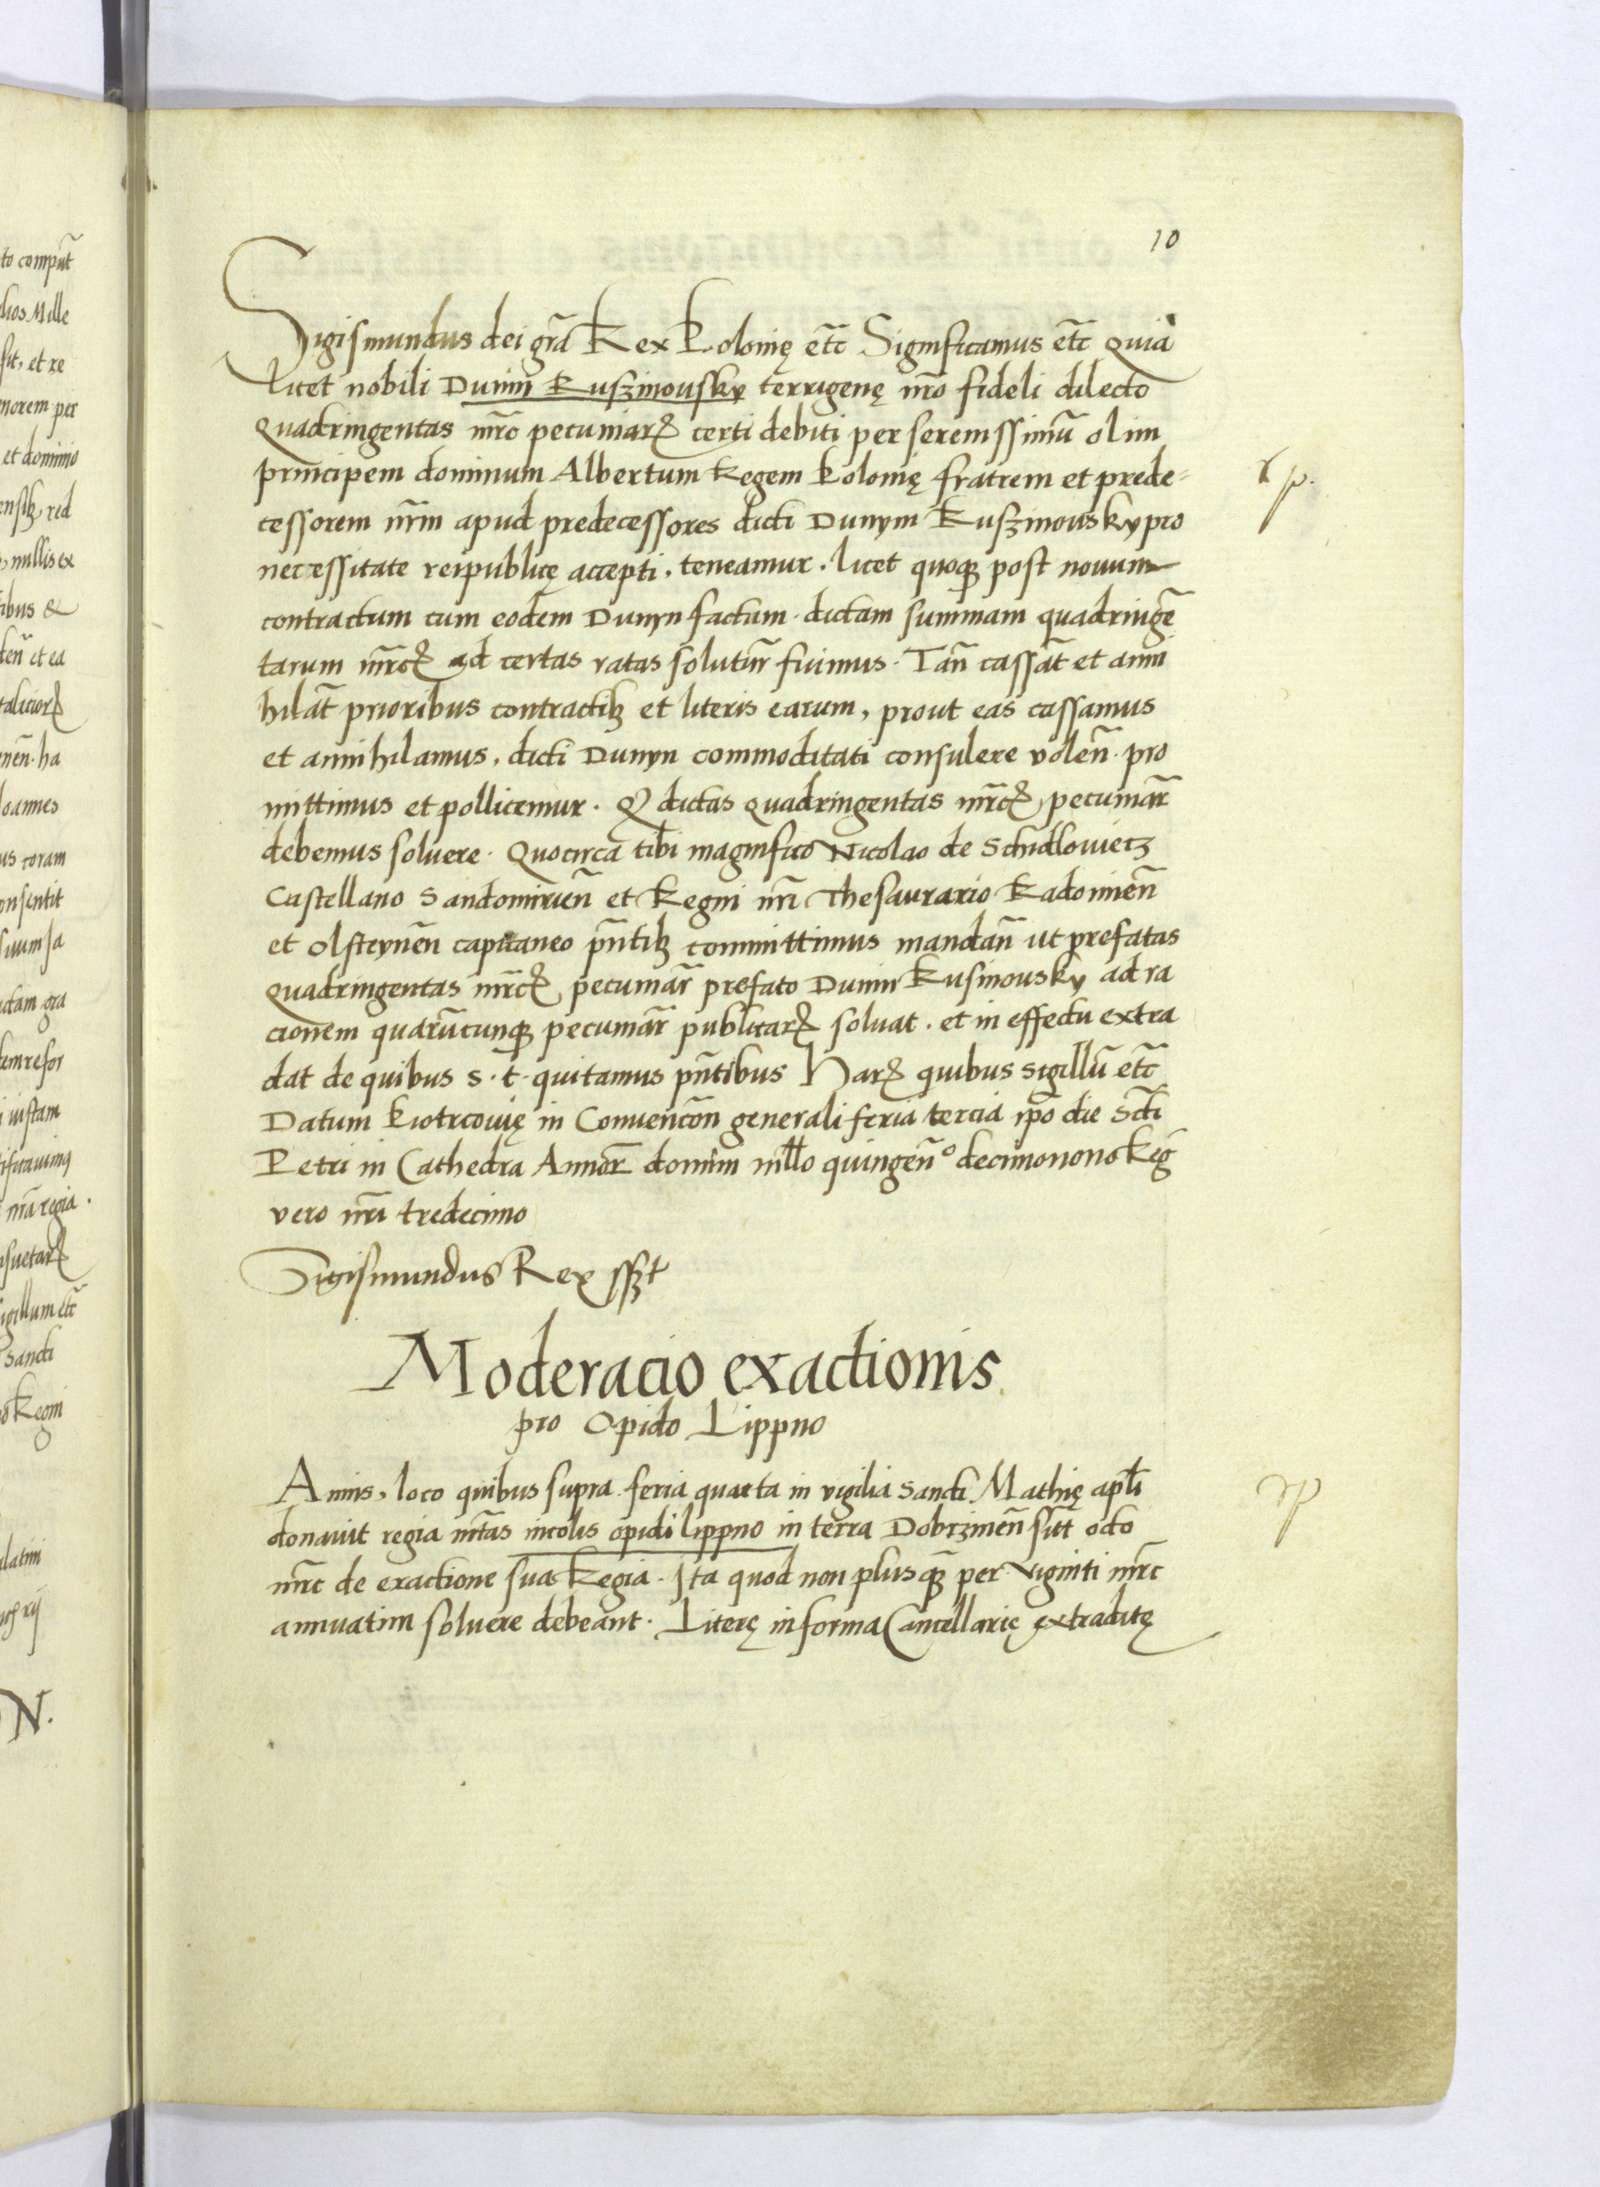 10
Sigismundus dei grā Rex Polonię etc̄ Significamus etc̄ Quia
licet nobili Dunin Ruszinousky terrigenę nr̄o fideli dilecto
Quadringentas mr̄c pecuniarꝝ certi debiti per serenissimū olim
principem dominum Albertum Regem Polonię fratrem et prede-
cessorem nr̄m apud predecessores dicti Dunyn Ruszinousky pro
necessitate reipublicę accepti, teneamur. licet quoqꝫ post nouum
contractum cum eodem Dunyn factum. dictam summam quadringē
tarum mr̄cꝝ ad certas ratas soluturj fuimus. Tan̄ cassāt et anni
hilāt prioribus contractibꝫ et literis earum, prout eas cassamus
et annihilamus, dicti Dunyn commoditati consulere volen̄. pro
mittimus et pollicemur. Q dictas quadringentas mr̄cꝝ pecuniar̄
debemus soluere. Quocirca tibi magnifico Nicolao de Schidlouiecz
Castellano Sandomirien̄ et Regni nr̄i Thesaurario Radomien̄
et Olsteynen̄ capitaneo pn̄tibꝫ committimus mandan̄ ut prefatas
quadringentas mr̄cꝝ pecuniar̄ prefato Dunin Rusinousky ad ra
cionem quarūcunqꝫ pecuniar̄ publicarꝝ soluat. et in effectu extra
dat de quibus s. t. quitamus pn̄tibus Harꝝ quibus sigillū etc̄
Datum Piotrcouię in Conuencōn generali feria tercia ip̄o die Scti
Petri in Cathedra Annor̄ domini millo quingen̄º decimonono Reg
vero nr̄i tredecimo
Sigismundus Rex sszt
rp.
Moderacio exactionis
pro Opido Lippno
Annis, loco quibus supra feria quarta in vigilia Sancti Mathię apl̄i
donauit regia mtas incolis opidi lippno in terra Dobrzinen̄ sitt octo
mr̄c de exactione sua Regia. Ita quod non plus qꝫ per viginti mr̄c
annuatim soluere debeant. Literę in forma Cancellarię extraditę
rp
to compūt
dios Mille
sit, et re
norem per
et dominio
red
nullis ex
ibus &
den̄ et ea
ha
Ioannes
us coram
onsentit
suum sa
gra
iustam
nr̄a regia.
sigillum etc̄
Sancti
Regni
N.